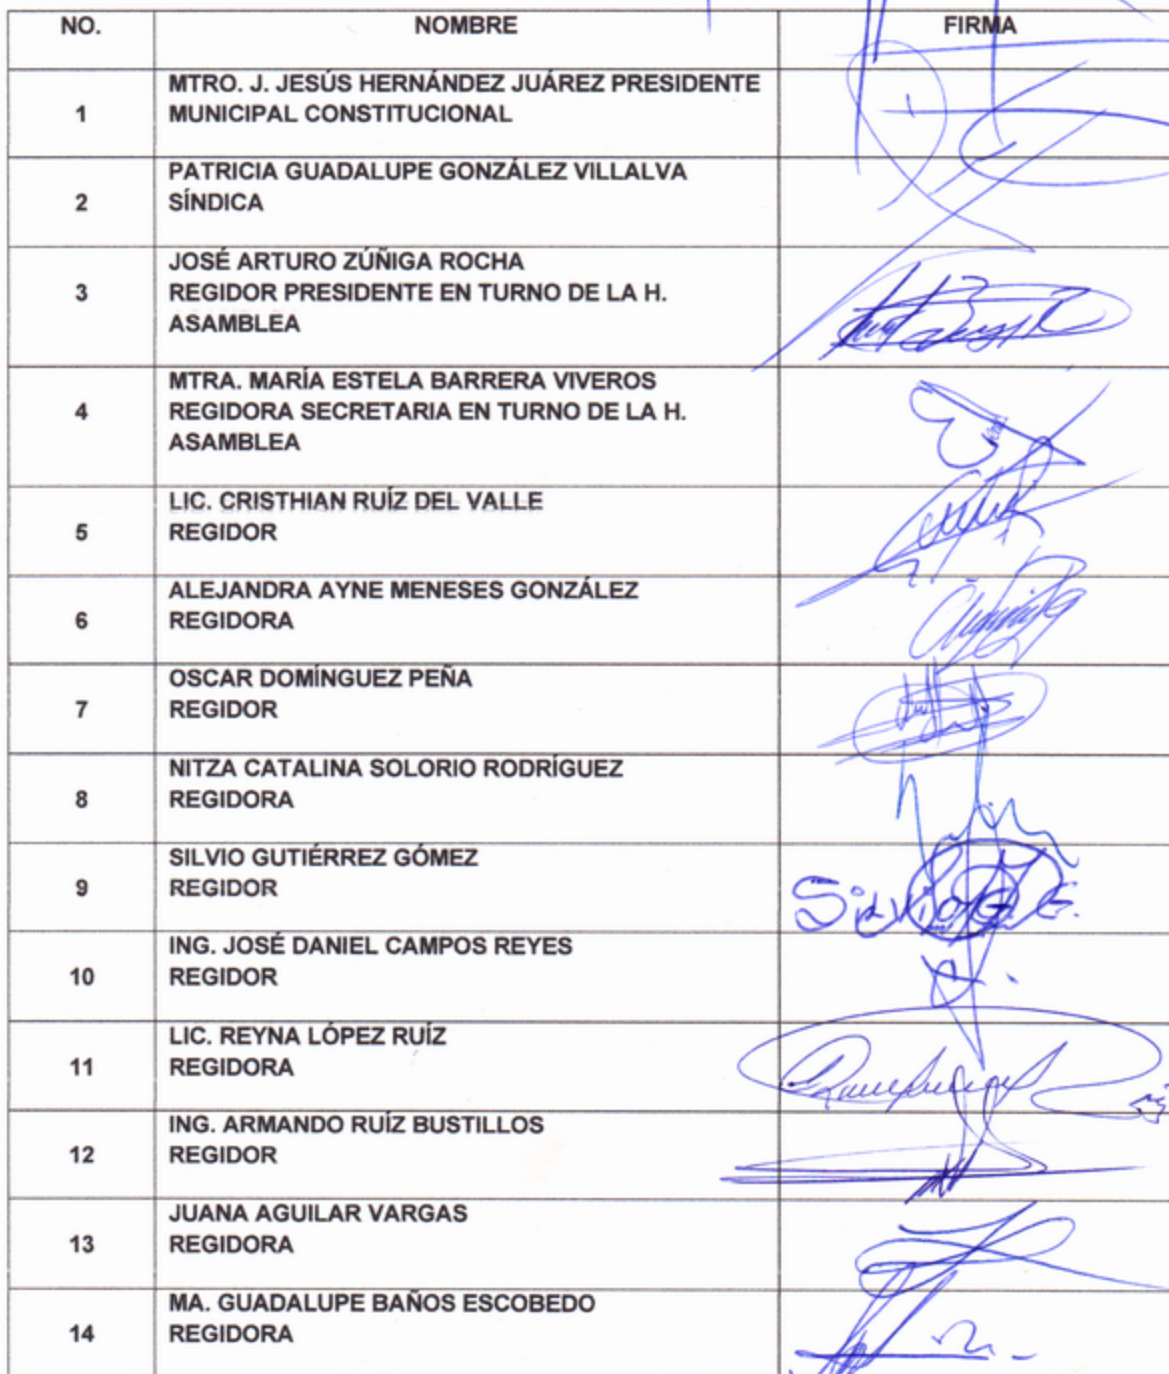 NO. NOMBRE FIRMA
1 MTRO. J. JESÚS HERNÁNDEZ JUÁREZ PRESIDENTE
MUNICIPAL CONSTITUCIONAL
2 PATRICIA GUADALUPE GONZÁLEZ VILLALVA
SÍNDICA
3 JOSÉ ARTURO ZÚÑIGA ROCHA
REGIDOR PRESIDENTE EN TURNO DE LA H.
ASAMBLEA
4 MTRA. MARÍA ESTELA BARRERA VIVEROS
REGIDORA SECRETARIA EN TURNO DE LA H.
ASAMBLEA
5 LIC. CRISTHIAN RUÍZ DEL VALLE
REGIDOR
6 ALEJANDRA AYNE MENESES GONZÁLEZ
REGIDORA
7 OSCAR DOMÍNGUEZ PEÑA
REGIDOR
8 NITZA CATALINA SOLORIO RODRÍGUEZ
REGIDORA
9 SILVIO GUTIÉRREZ GÓMEZ
REGIDOR
Silvio G. G.
10 ING. JOSÉ DANIEL CAMPOS REYES
REGIDOR
11 LIC. REYNA LÓPEZ RUÍZ
REGIDORA
12 ING. ARMANDO RUÍZ BUSTILLOS
REGIDOR
13 JUANA AGUILAR VARGAS
REGIDORA
14 MA. GUADALUPE BAÑOS ESCOBEDO
REGIDORA